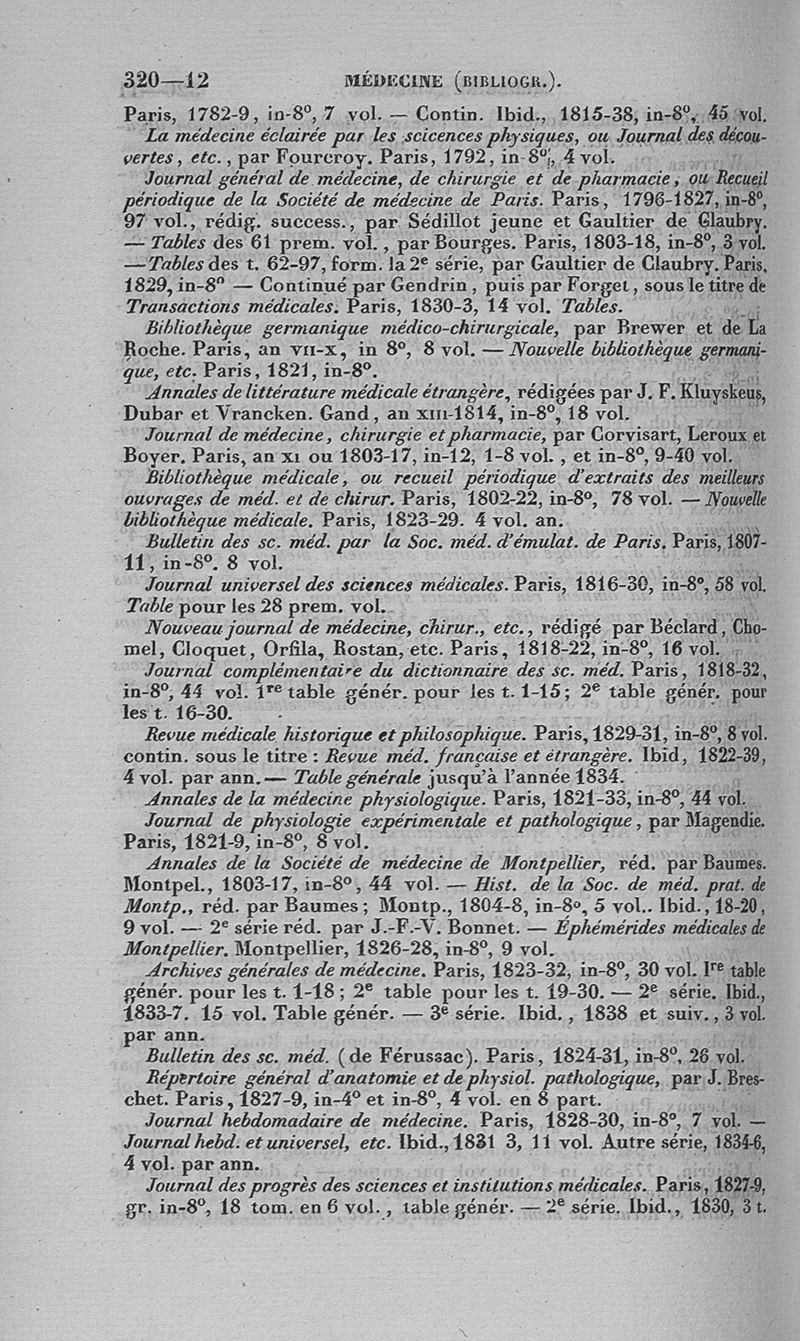 320—12 MÉDECINE (BIBLIOGR.).
Paris, 1782-9, in-8°, 7 vol. — Contin. Ibid., 1815-38, in-8°, 45 vol.
La médecine éclairée par les scicences physiques, ou Journal des décou-
vertes, etc., par Fourcroy. Paris, 1792, in-8°, 4 vol.
Journal général de médecine, de chirurgie et de pharmacie, ou Recueil
périodique de la Société de médecine de Paris. Paris, 1796-1827, in-8°,
97 vol., rédig. success., par Sédillot jeune et Gaultier de Glaubry.
— Tables des 61 prem. vol., par Bourges. Paris, 1803-18, in-8°, 3 vol.
— Tables des t. 62-97, form. la 2e série, par Gaultier de Claubry. Paris,
1829, in-8° — Continué par Gendrin, puis par Forget, sous le titre de
Transactions médicales. Paris, 1830-3, 14 vol. Tables.
Bibliothèque germanique médico-chirurgicale, par Brewer et de La
Roche. Paris, an VII-X, in 8°, 8 vol. — Nouvelle bibliothèque germani-
que, etc. Paris, 1821, in-8°.
Annales de littérature médicale étrangère, rédigées par J. F. Kluyskeus,
Dubar et Vrancken. Gand, an XIII-1814, in-8°, 18 vol.
Journal de médecine, chirurgie et pharmacie, par Corvisart, Leroux et
Boyer. Paris, an XI ou 1803-17, in-12, 1-8 vol., et in-8°, 9-40 vol.
Bibliothèque médicale, ou recueil périodique d'extraits des meilleurs
ouvrages de méd. et de chirur. Paris, 1802-22, in-8°, 78 vol. — Nouvelle
bibliothèque médicale. Paris, 1823-29. 4 vol. an.
Bulletin des sc. méd. par la Soc. méd. d'émulat. de Paris. Paris, 1807-
11, in-8°. 8 vol.
Journal universel des sciences médicales. Paris, 1816-30, in-8°, 58 vol.
Table pour les 28 prem. vol.
Nouveau journal de médecine, chirur., etc., rédigé par Béclard, Cho-
mel, Cloquet, Orfila, Rostan, etc. Paris, 1818-22, in-8°, 16 vol.
Journal complémentaire du dictionnaire des sc. méd. Paris, 1818-32,
in-8°, 44 vol. 1re table génér. pour les t. 1-15; 2e table génér. pour
les t. 16-30.
Revue médicale historique et philosophique. Paris, 1829-31, in-8°, 8 vol.
contin. sous le titre : Revue méd. française et étrangère. Ibid, 1822-39,
4 vol. par ann. — Table générale jusqu'à l'année 1834.
Annales de la médecine physiologique. Paris, 1821-33, in-8°, 44 vol.
Journal de physiologie expérimentale et pathologique, par Magendie.
Paris, 1821-9, in-8°, 8 vol.
Annales de la Société de médecine de Montpellier, réd. par Baumes.
Montpel., 1803-17, in-8°, 44 vol. — Hist. de la Soc. de méd. prat. de
Montp., réd. par Baumes; Montp., 1804-8, in-8°, 5 vol.. Ibid., 18-20,
9 vol. — 2e série réd. par J.-F.-V. Bonnet. — Éphémérides médicales de
Montpellier. Montpellier, 1826-28, in-8°, 9 vol.
Archives générales de médecine. Paris, 1823-32, in-8°, 30 vol. Ire table
génér. pour les t. 1-18; 2e table pour les t. 19-30. — 2e série. Ibid.,
1833-7. 15 vol. Table génér. — 3e série. Ibid., 1838 et suiv., 3 vol.
par ann.
Bulletin des sc. méd. (de Férussac). Paris, 1824-31, in-8°, 26 vol.
Répertoire général d'anatomie et de physiol. pathologique, par J. Bres-
chet. Paris, 1827-9, in-4° et in-8°, 4 vol. en 8 part.
Journal hebdomadaire de médecine. Paris, 1828-30, in-8°, 7 vol. —
Journal hebd. et universel, etc. Ibid., 1831 3, 11 vol. Autre série, 1834-6,
4 vol. par ann.
Journal des progrès des sciences et institutions médicales. Paris, 1827-9,
gr. in-8°, 18 tom. en 6 vol., table génér. — 2e série. Ibid., 1830, 3 t.